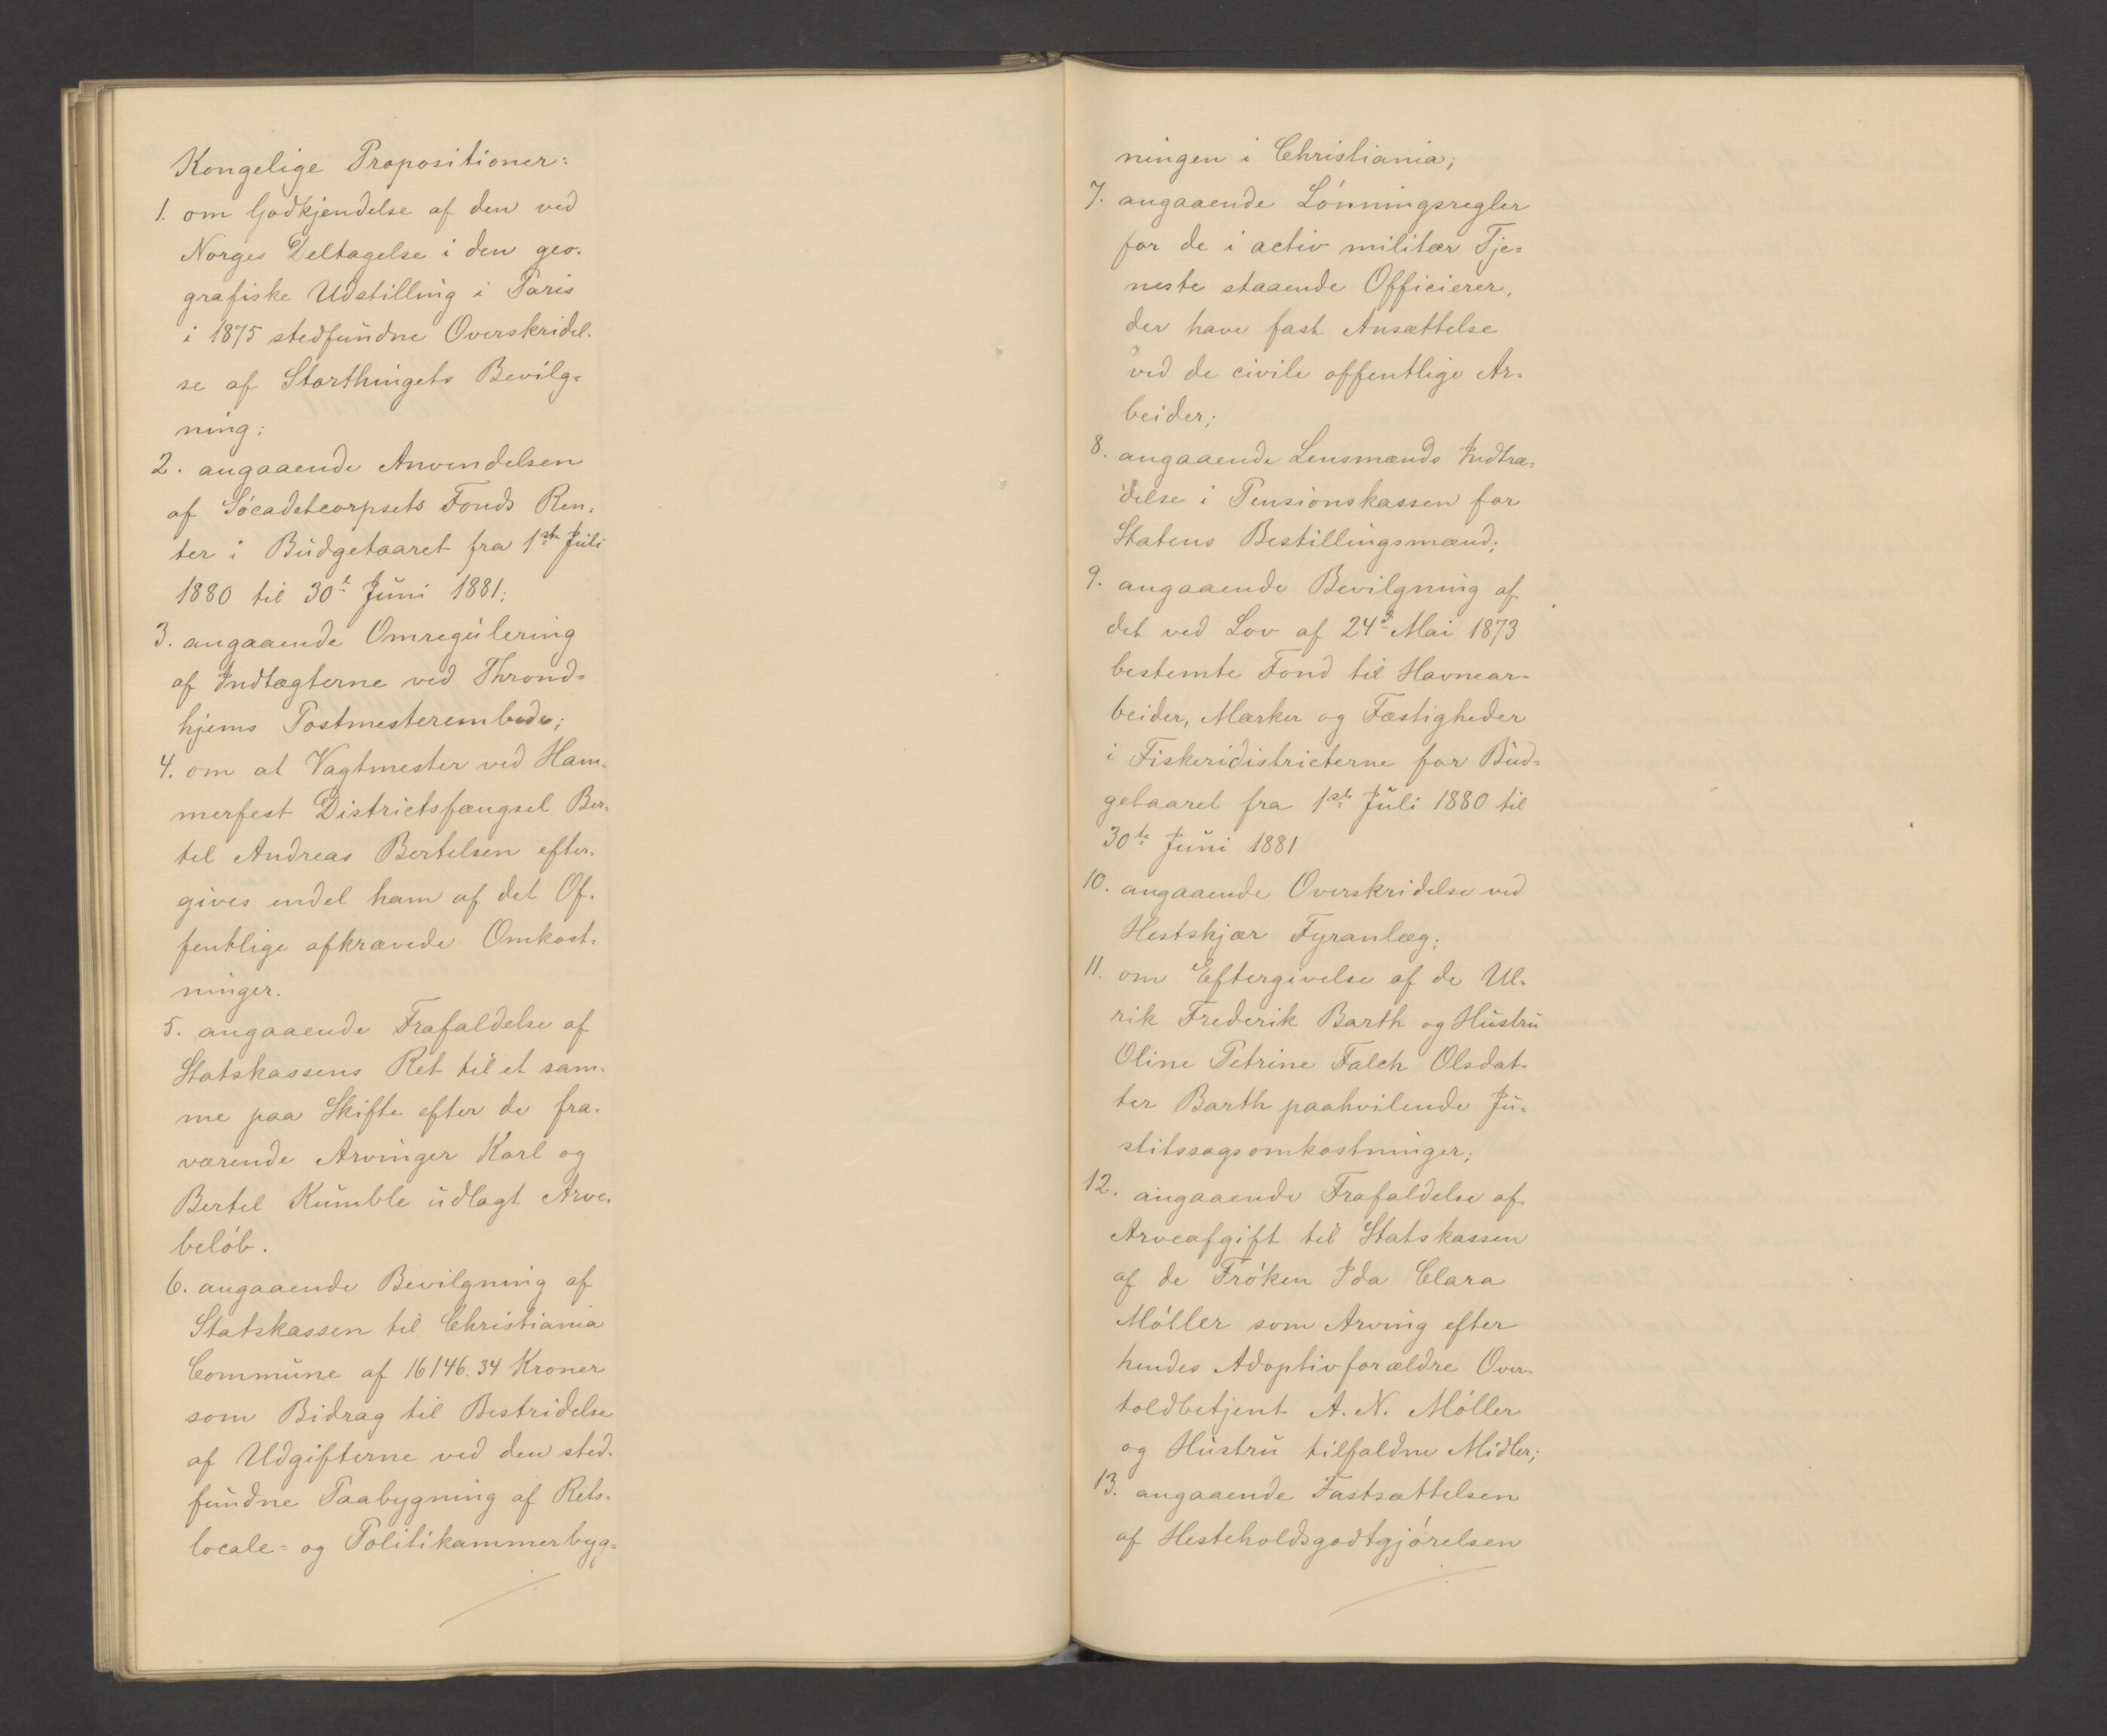 Kongelige Propositioner:
1. om Godkjendelse af den ved
Norges Deltagelse i den geo-
grafiske Udstilling i Paris
i 1875 stedfundne Overskridel-
se af Storthingets Bevilg-
ning:
2. angaaende Anvendelsen
af Søcadetcorpsets Fonds Ren-
ter i Budgetaaret fra 1ste Juli
1880 til 30te Juni 1881;
3. angaaende Omregulering
af Indtægterne ved Thrond-
hjems Postmesterembede;
4. om at Vagtmester ved Ham-
merfest Districtsfængsel Ber-
tel Andreas Bertelsen efter-
gives endel ham af det Of-
fentlige afkrævede Omkost-
ninger.
5. angaaende Frafaldelse af
Statskassens Ret til et sam-
me paa Skifte efter de fra-
værende Arvinger Karl og
Bertel Kumble udlagt Arve-
beløb.
6. angaaende Bevilgning af
Statskassen til Christiania
Commune af 16146.34 Kroner
som Bidrag til Bestridelse
af Udgifterne ved den sted-
fundne Paabygning af Rets-
locale- og Politikammerbyg-
ningen i Christiania;
7. angaaende Lønningsregler
for de i activ militær Tje-
neste staaende Officierer,
der have fast Ansættelse
ved de civile offentlige Ar-
beider;
8. angaaende Lensmænds Indtræ-
delse i Pensionskassen for
Statens Bestillingsmænd;
9. angaaende Bevilgning af
det ved Lov af 24de Mai 1873
bestemte Fond til Havnear-
beider, Mærker og Fæstigheder
i Fiskeridistricterne for Bud-
getaaret fra 1ste Juli 1880 til
30te Juni 1881
10. angaaende Overskridelse ved
Hestskjær Fyranlæg;
11. om Eftergivelse af de Ul-
rik Frederik Barth og Hustru
Oline Petrine Falch Olsdat-
ter Barth paahvilende Ju-
stitssagsomkostninger;
12. angaaende Frafaldelse af
Arveafgift til Statskassen
af de Frøken Ida Clara
Møller som Arving efter
hendes Adoptivforældre Over-
toldbetjent A. N. Møller
og Hustru tilfaldne Midler;
13. angaaende Fastsættelsen
af Hesteholdsgodtgjørelsen